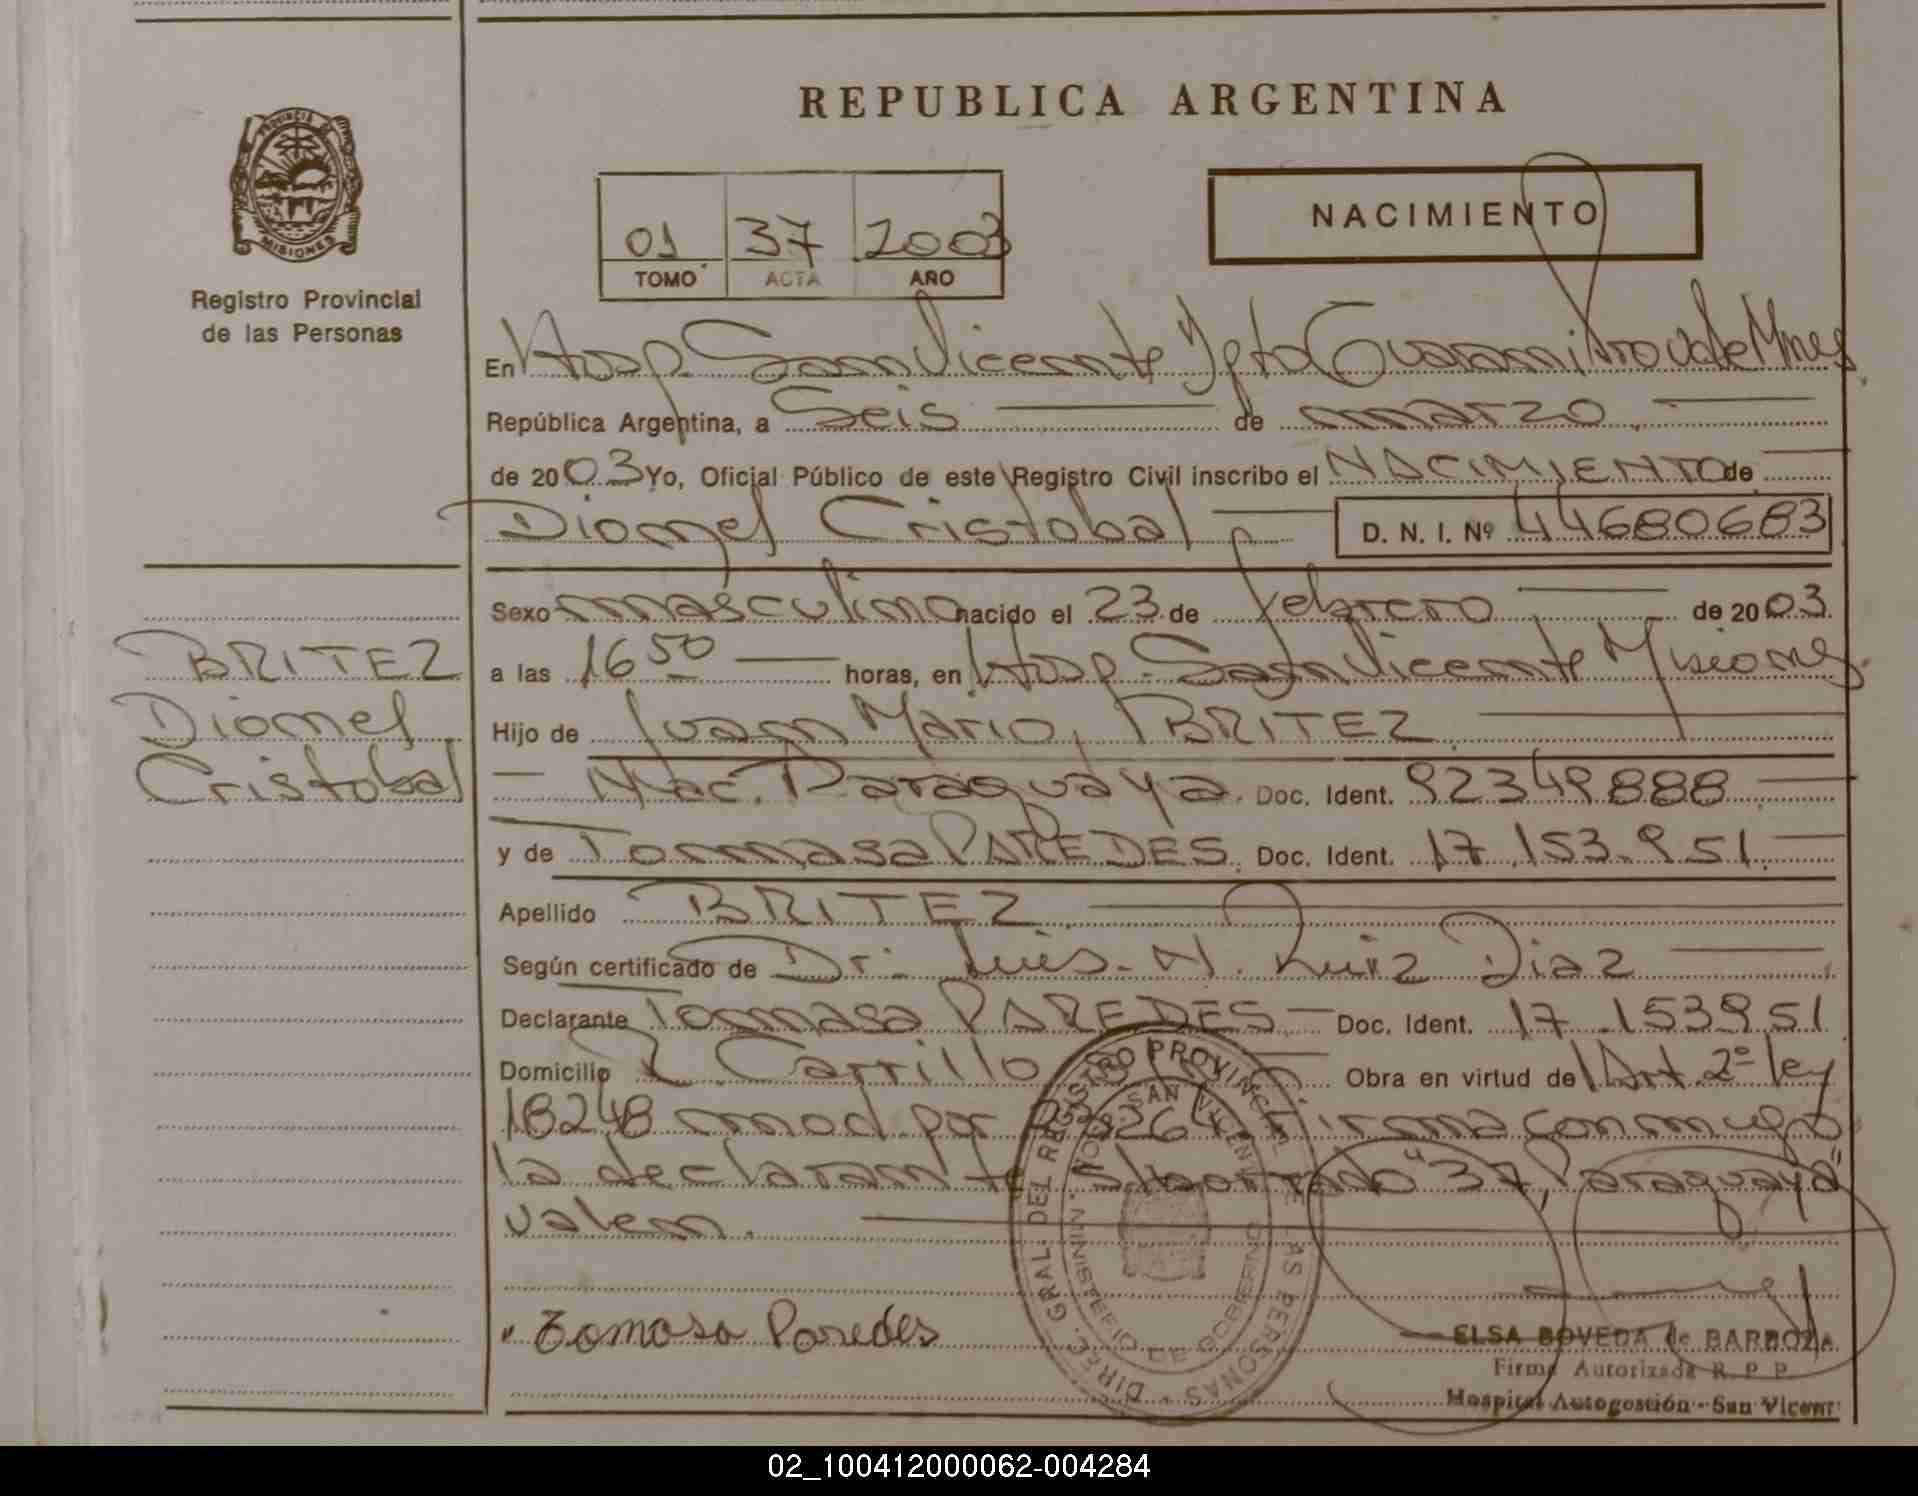 REPUBLICA ARGENTINA
PROVINCIA DE
MISIONES
Registro Provincial
de las Personas
01 37 2003
TOMO ACTA AÑO
NACIMIENTO
En Hosp. San Vicente Dpto Guarani Prov de Mnes
República Argentina, a Seis de marzo
de 2003 Yo, Oficial Público de este Registro Civil inscribo el NACIMIENTO de
Dionel Cristobal D. N. I. Nº 44680683
Sexo masculino nacido el 23 de febrero de 2003
a las 16 50 horas, en Hosp. San Vicente Misiones
BRITEZ
Dionel
Cristobal
Hijo de Juan Mario, BRITEZ
Nac. Paraguaya. Doc. Ident. 92349888
y de Tomasa PAREDES. Doc. Ident. 17.153.951.
Apellido BRITEZ
Según certificado de Dr. Luis. N. Ruiz Diaz
Declarante Tomasa PAREDES Doc. Ident. 17.153951
Domicilio R Carrillo Obra en virtud de Art. 2º ley
18248 mod. por 23264 Firma conmigo
la declarante S/borrado "37, Paraguaya"
valen.
Tomasa Paredes
DIREC. GRAL. DEL REGISTRO PROVINCIAL DE LAS PERSONAS
SAN VICENTE
MINISTERIO DE GOBIERNO
ELSA BOVEDA de BARBOZA
Firma Autorizada R. P. P.
Hospital Autogestión - San Vicent
02_100412000062-004284